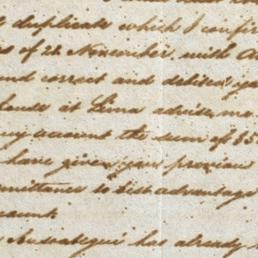 duplicate which I confir
of 22 November, with A
nd correct and debited y
at Lima advise me
my account the sum of $5
have given you previous
mittance to disadvantage
count
has already